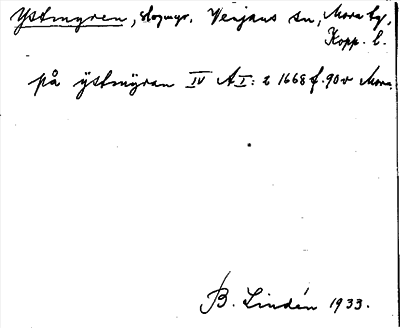 Ystmyren, slogmyr. Venjans sn, Mora tg,
Kopp. l.
på ÿstmÿran IV A I: 2 1668 f. 90v Mora
B. Lindén 1933.